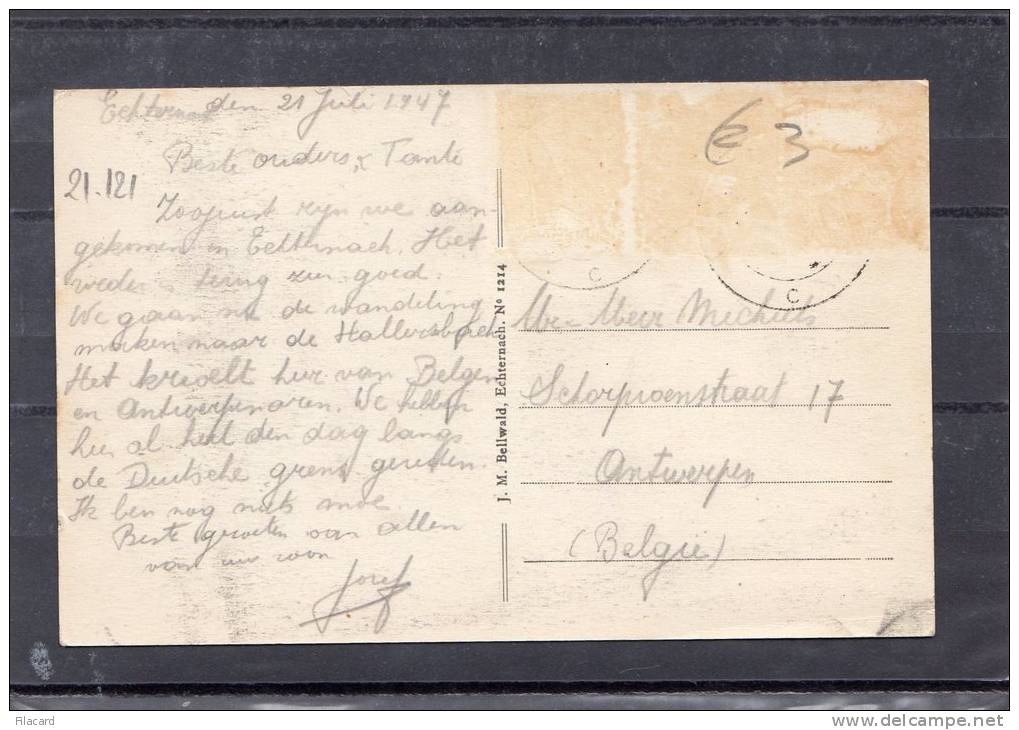 Echternach den 21 Juli 1947
Beste ouders, & Tante
21.121
Zoojuist zijn we aan-
gekomen in Echternach. Het
weder is terug zeer goed.
We gaan nu de wandeling
maken naar de Hallersbach
Het krioelt hier van Belgen
en Antwerpenaren. We hebben
hier al heel den dag langs
de Duitsche grens gereden.
Ik ben nog niets moe
Beste groeten van allen
van uw zoon
Jozef
J. M. Bellwald, Echternach. Nº 1214
€ 3
C
C
Mr - Mevr Mechiels
Schorpioenstraat 17
Antwerpen
(België)
Filacard
www.delcampe.net